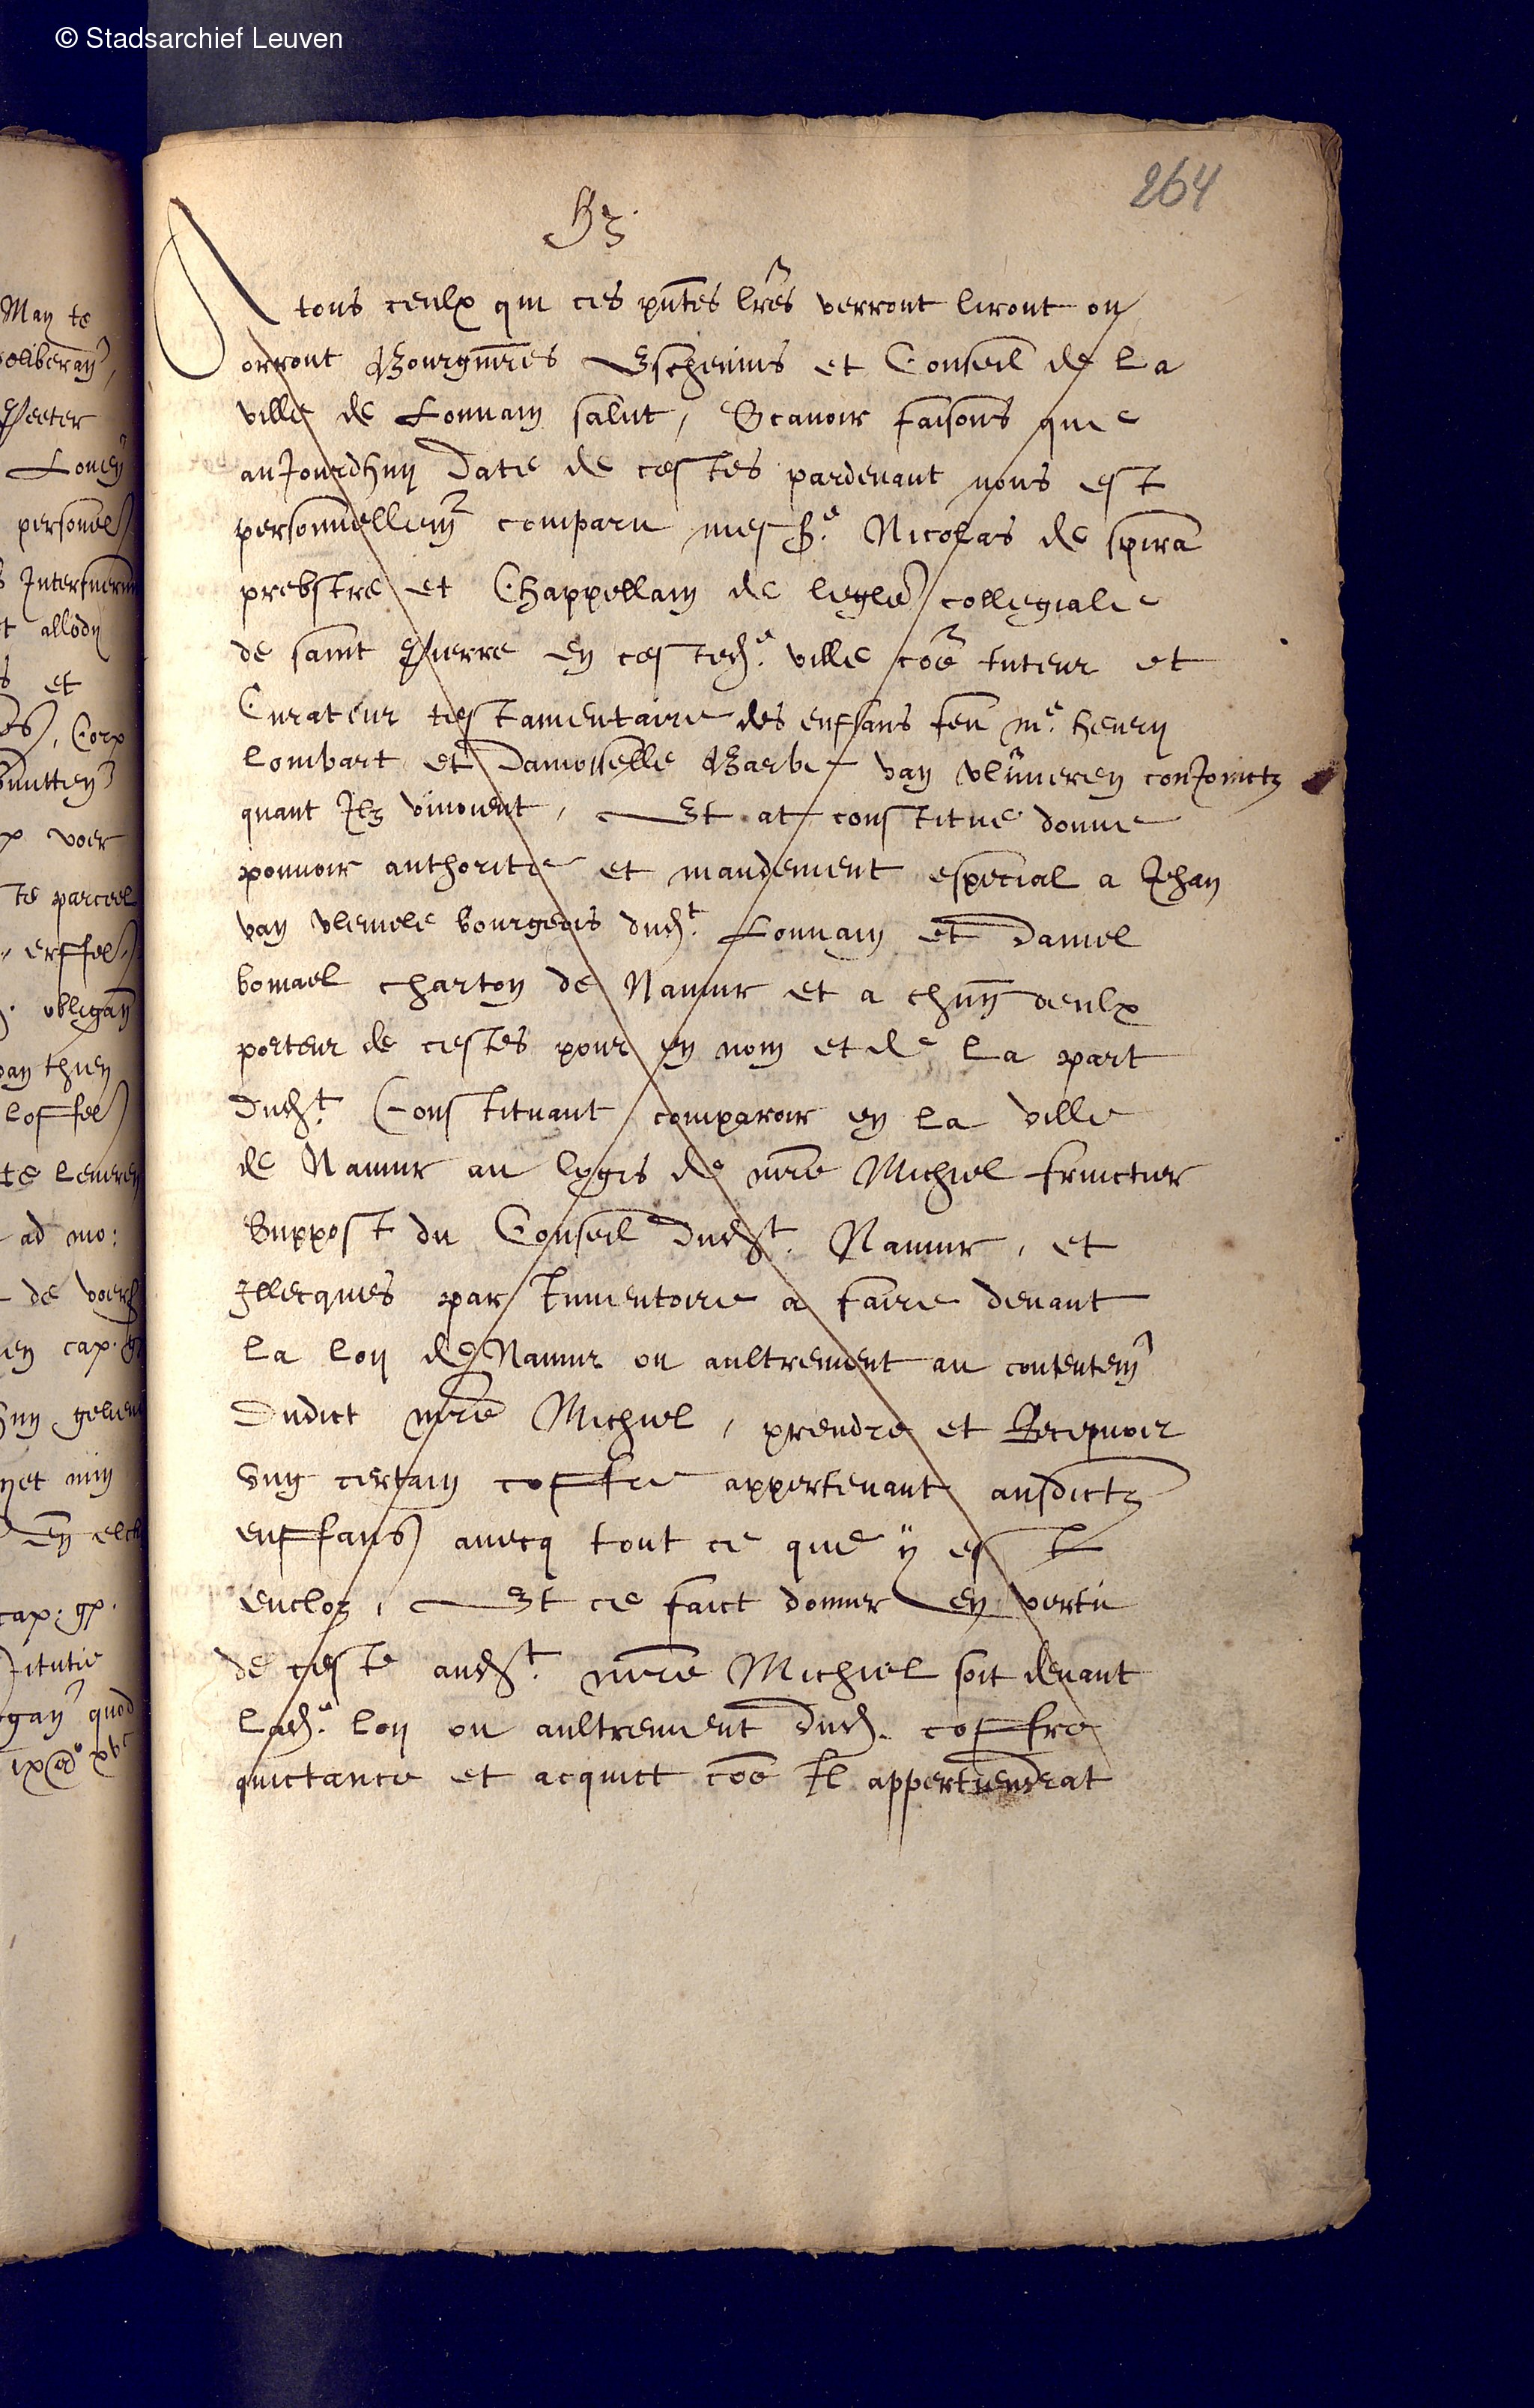 © Stadsarchief Leuven
264
A tous ceulx qui ces pñtes lrẽs verront liront ou
orront Bourgmr̃es Eschevins et Conseil de La
ville de Louuain salut, Scauoir faisons que
auJourdhuy Date de cestes pardeuant nous est
personnellem̃ comparu mess.e Nicolas de spira
prebstre et Chappellain de leglẽ collegiale
de saint Pierre en cested.e ville cõe tuteur et
Curateur testamentaire des enffans feu m.e henry
lombart et Damoiselle Barbe van vlimeren conJoinctz
quant Ilz viuoient, Et at constitue donne
pouuoir authorite et mandement especial a Jehan
van vlemele bourgeois dud.t Louuain et Daniel
bomael charton de Namur et a chũn deulx
porteur de cestes pour en nom et de La part
Dud.t Constituant comparoir en La ville
de Namur au logis de mr̃e Michiel fructier
Suppost du Conseil Dud.t Namur, et
Illecques par Inuentoire a faire deuant
La loy de Namur ou aultrement au contentem̃
Dudict mr̃e Michiel, prendre et Recepuoir
vng certain coffre appertenant ausdictz
enffans auecq tout ce que ÿ est
encloz, Et ce faict donner en vertu
de ceste aud.t mr̃e Michiel soit deuant
Lad.e loy ou aultrement Dud. coffre
quictance et acquict cõe Il appertiendrat
May te
Peeter
Louen
personel
allody
et
Corp
voer
te parceel
erffel
obligan
van thien
loffel
te leueren
ad mo:
de voers
cap.
met
cap: gp.
quod